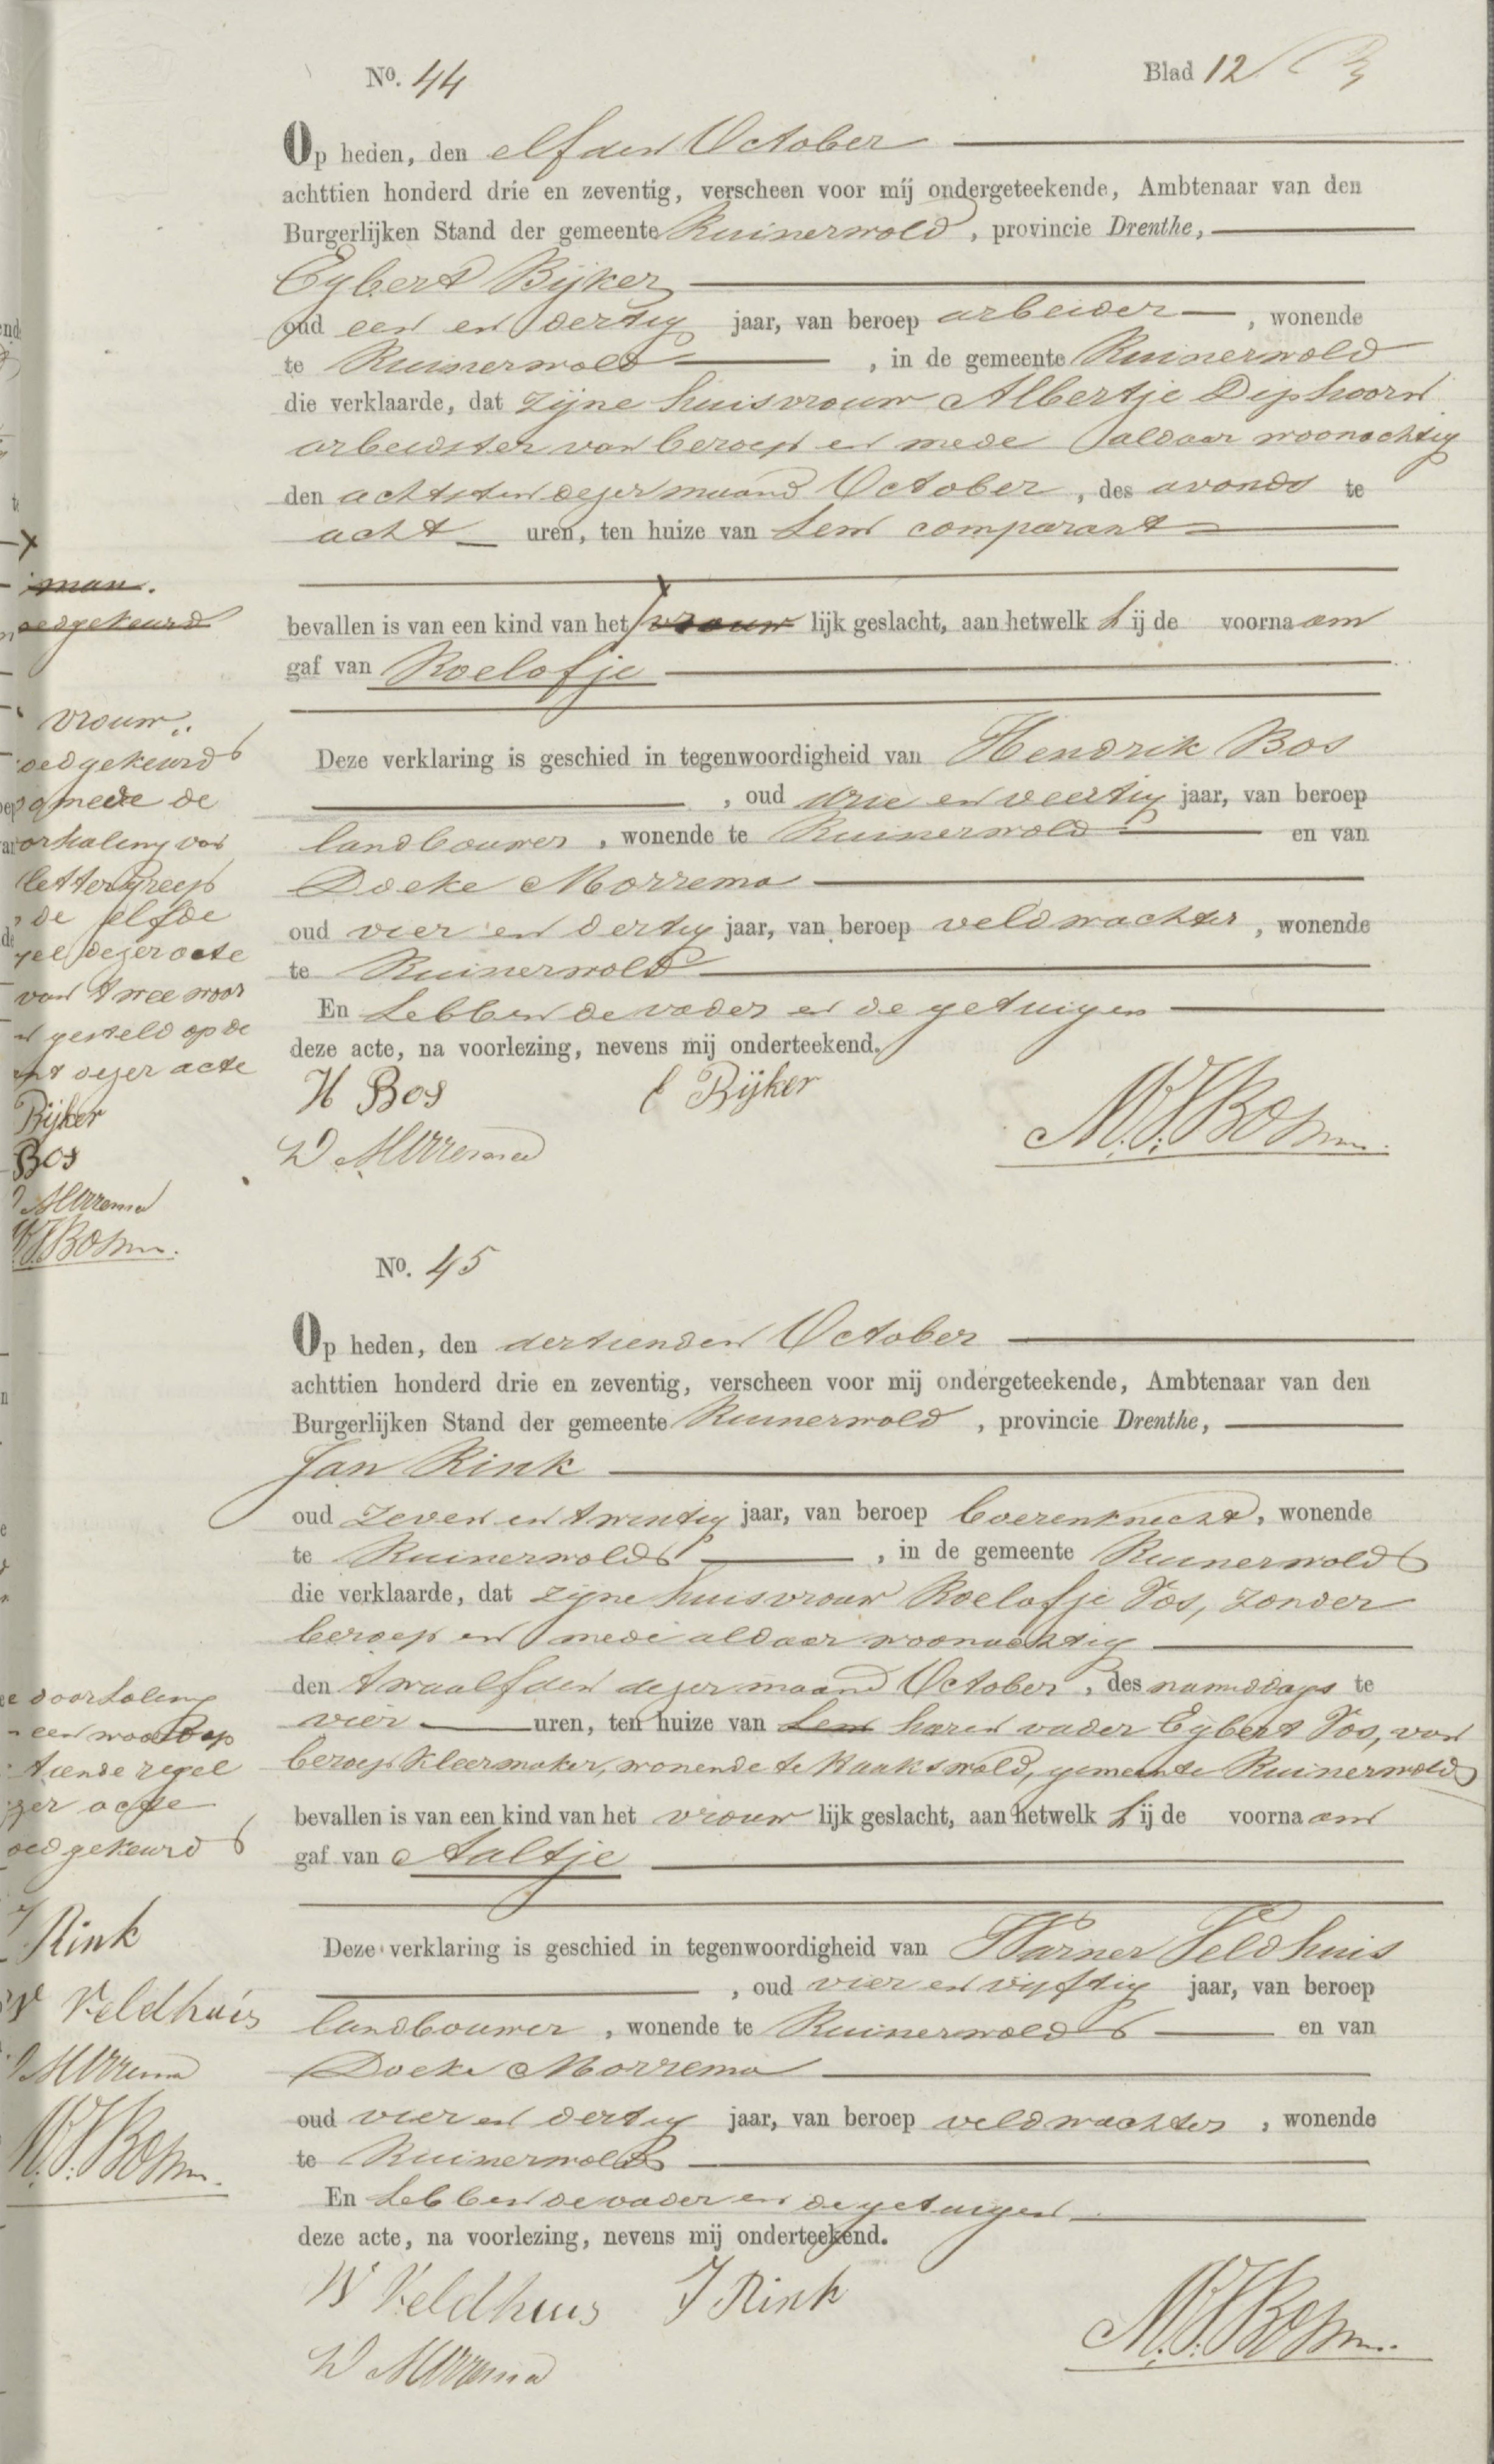 No. 44
Blad 12
Op heden, den elfden October
achttien honderd drie en zeventig, verscheen voor mij ondergeteekende, Ambtenaar van den
Burgerlijken Stand der gemeente Ruinerwold, provincie Drenthe,
Egbert Bijker
oud een en dertig jaar, van beroep arbeider, wonende
te Ruinerwold, in de gemeente Ruinerwold
die verklaarde, dat zijne huisvrouw Albertje Diphoorn
arbeidster van beroep en mede aldaar woonachtig
den achtsten dezer maand October, des avonds te
acht uren, ten huize van hem comparant
man.
oedgekeurd
bevallen is van een kind van het vrouw lijk geslacht, aan hetwelk hij de voornaam
gaf van Roelofje
vrouw.
oedgekeurd
Deze verklaring is geschied in tegenwoordigheid van Hendrik Bos
mede de
, oud drie en veertig jaar, van beroep
orhaling van
landbouwer, wonende te Ruinerwold en van
lettergreep
Doeke Morrema
de elfde
oud vier en dertig jaar, van beroep veldwachter, wonende
gel dezer acte
te Ruinerwold
van twee woor
En hebben de vader en de getuigen
n gesteld op de
deze acte, na voorlezing, nevens mij onderteekend.
nt dezer acte
H Bos
E Bijker
Bijker
D Morrema
Bos
Morrema
No. 45
Op heden, den dertienden October
achttien honderd drie en zeventig, verscheen voor mij ondergeteekende, Ambtenaar van den
Burgerlijken Stand der gemeente Ruinerwold, provincie Drenthe,
Jan Rink
oud zeven en twintig jaar, van beroep boerenknecht, wonende
te Ruinerwold, in de gemeente Ruinerwold
die verklaarde, dat zijne huisvrouw Roelofje Vos, zonder
beroep en mede aldaar woonachtig
den twaalfden dezer maand October, des namiddags te
e doorhaling
vier uren, ten huize van hem haren vader Egbert Vos, van
een woord op
beroep kleermaker, wonende te Haakswold, gemeente Ruinerwold
tiende regel
bevallen is van een kind van het vrouw lijk geslacht, aan hetwelk hij de voornaam
zer acte
gaf van Aaltje
oedgekeurd
J Rink
Deze verklaring is geschied in tegenwoordigheid van Warner Veldhuis
, oud vier en vijftig jaar, van beroep
W Veldhuis
landbouwer, wonende te Ruinerwold en van
D Morrema
Doeke Morrema
oud vier en dertig jaar, van beroep veldwachter, wonende
te Ruinerwold
En hebben de vader en de getuigen
deze acte, na voorlezing, nevens mij onderteekend.
W Veldhuis
J Rink
D Morrema